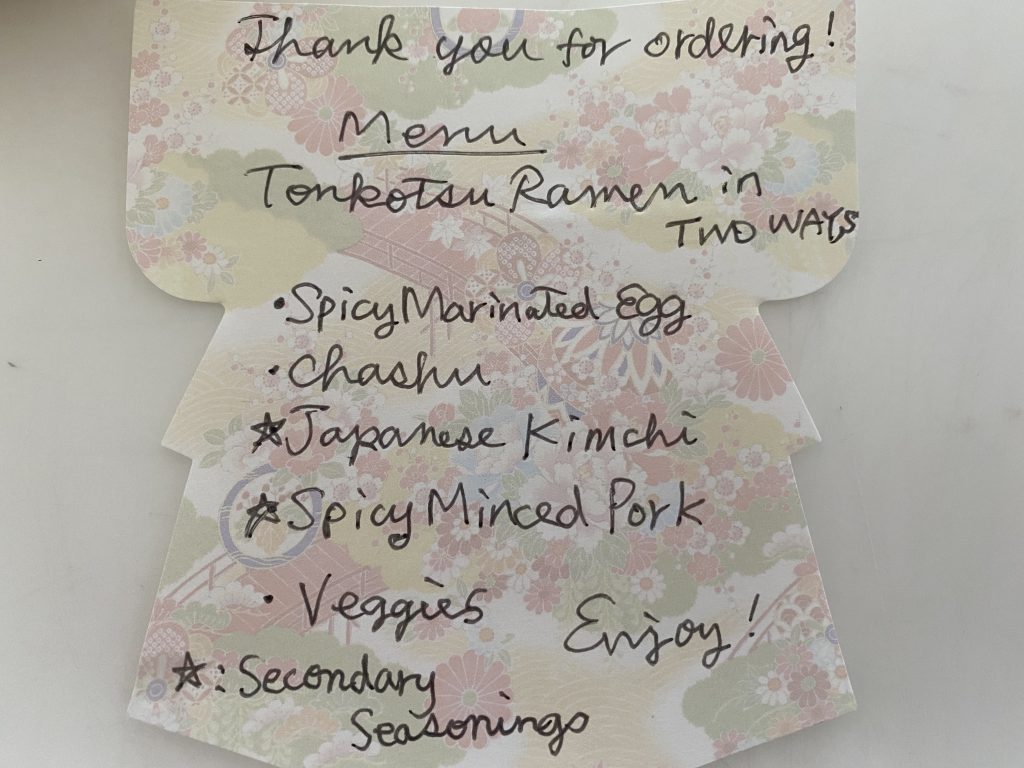 Thank you for ordering!
Menu
Tonkotsu Ramen in
TWO WAYS
• Spicy Marinated Egg
• Chashu
☆ Japanese Kimchi
☆ Spicy Minced Pork
• Veggies
Enjoy!
☆: Secondary
Seasonings